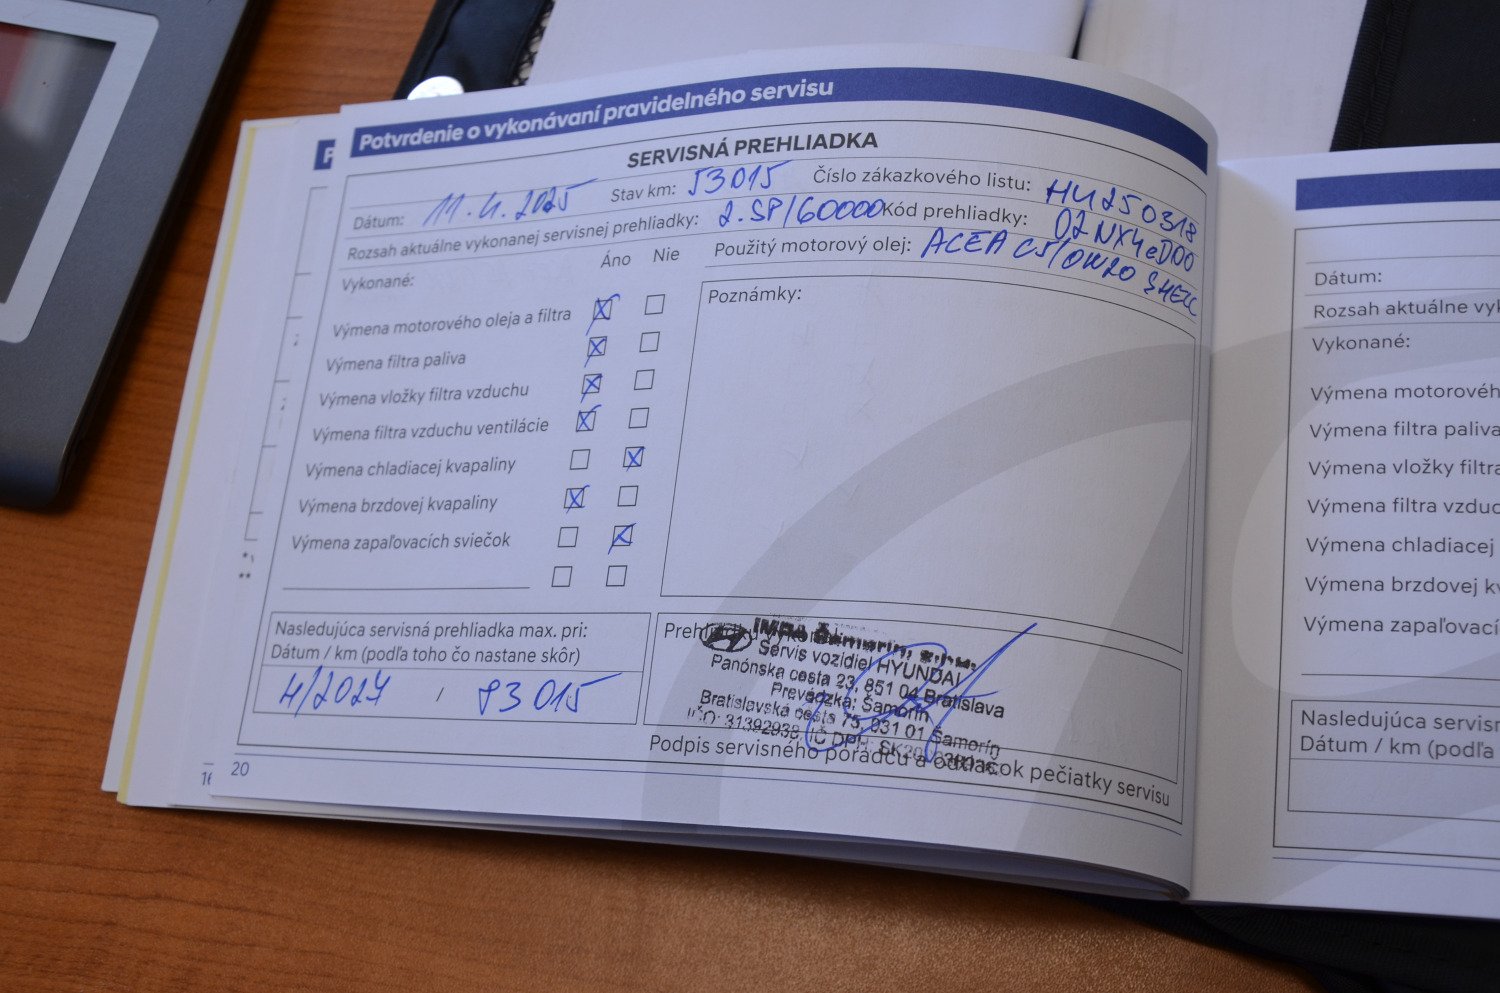 Potvrdenie o vykonávaní pravidelného servisu
SERVISNÁ PREHLIADKA
Dátum: 11.4.2025 Stav km: 53015 Číslo zákazkového listu: HU250318
Rozsah aktuálne vykonanej servisnej prehliadky: 2.SP/60000 Kód prehliadky: 02NX4eD00
Použitý motorový olej: ACEA C5/0W20 SHELL
Vykonané: Áno Nie
Výmena motorového oleja a filtra
Výmena filtra paliva
Výmena vložky filtra vzduchu
Výmena filtra vzduchu ventilácie
Výmena chladiacej kvapaliny
Výmena brzdovej kvapaliny
Výmena zapaľovacích sviečok
Poznámky:
Nasledujúca servisná prehliadka max. pri:
Dátum / km (podľa toho čo nastane skôr)
4/2027 / 83015
Šamorín, s.r.o.
Servis vozidiel HYUNDAI
Panónska cesta 23, 851 04 Bratislava
Prevádzka: Šamorín
Bratislavská cesta 75, 931 01 Šamorín
IČO: 31392938, IČ DPH: 
Podpis servisného poradcu a odtlačok pečiatky servisu
20
Dátum:
Rozsah aktuálne
Vykonané:
Výmena
Výmena filtra paliva
Výmena vložky filtra
Výmena filtra
Výmena chladiacej
Výmena brzdovej
Výmena
Nasledujúca
Dátum / km (podľa